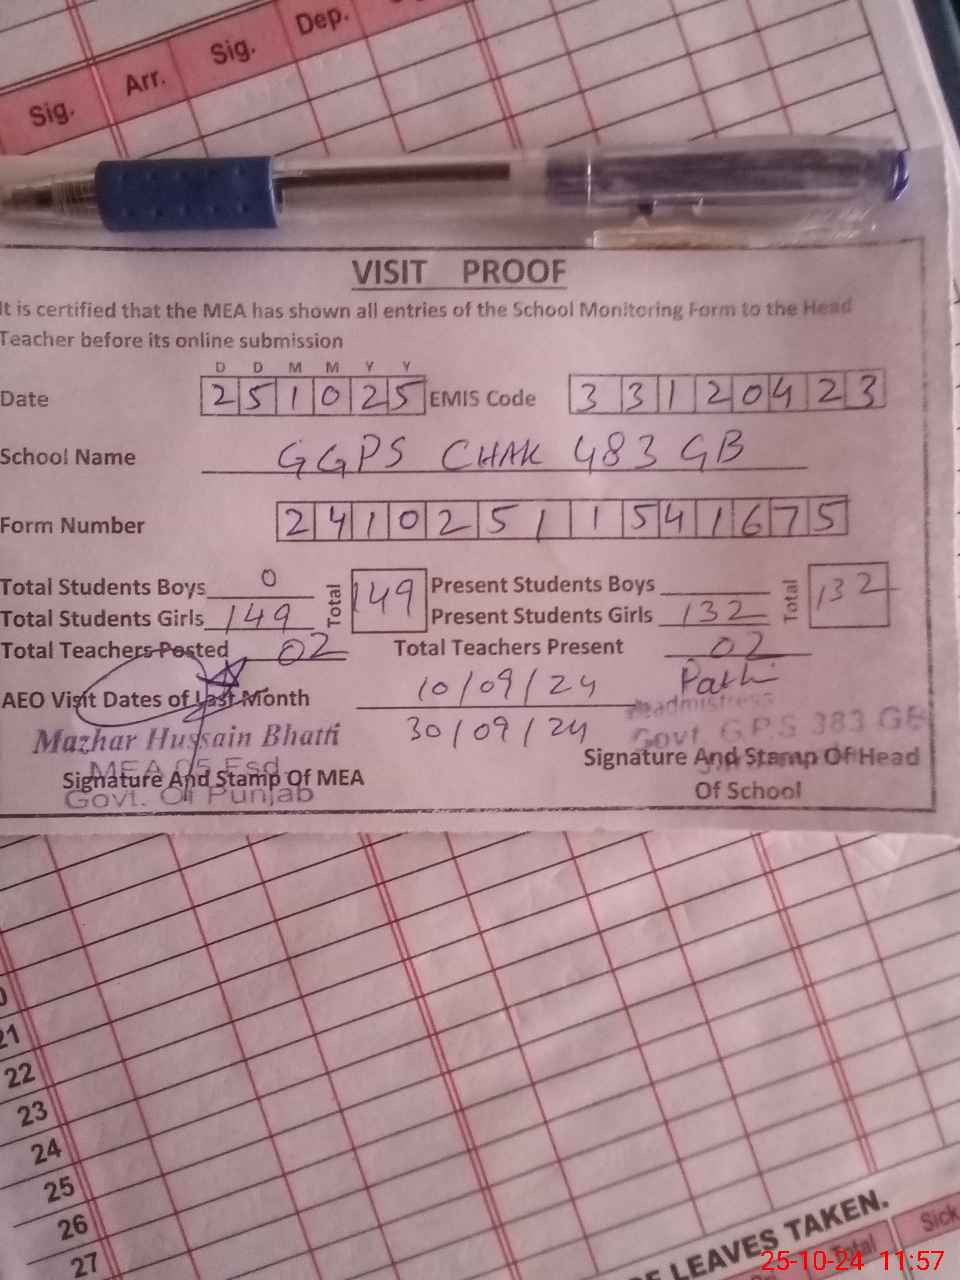 Sig. Arr. Sig. Dep.
VISIT PROOF
It is certified that the MEA has shown all entries of the School Monitoring Form to the Head
Teacher before its online submission
D D M M Y Y
Date 251025 EMIS Code 33120423
School Name GGPS CHAK 483 GB
Form Number 24102511541675
Total Students Boys 0 Total 149 Present Students Boys Total 132
Total Students Girls 149 Present Students Girls 132
Total Teachers Posted 02 Total Teachers Present 02
AEO Visit Dates of Last Month 10/09/24
30/09/24
Headmistress
Govt. G.P.S 383 GB
Mazhar Hussain Bhatti
MEA 05 Fsd
Govt. Of Punjab
Signature And Stamp Of MEA
Signature And Stamp Of Head
Of School
21
22
23
24
25
26
27
LEAVES TAKEN.
Sick
25-10-24 11:57